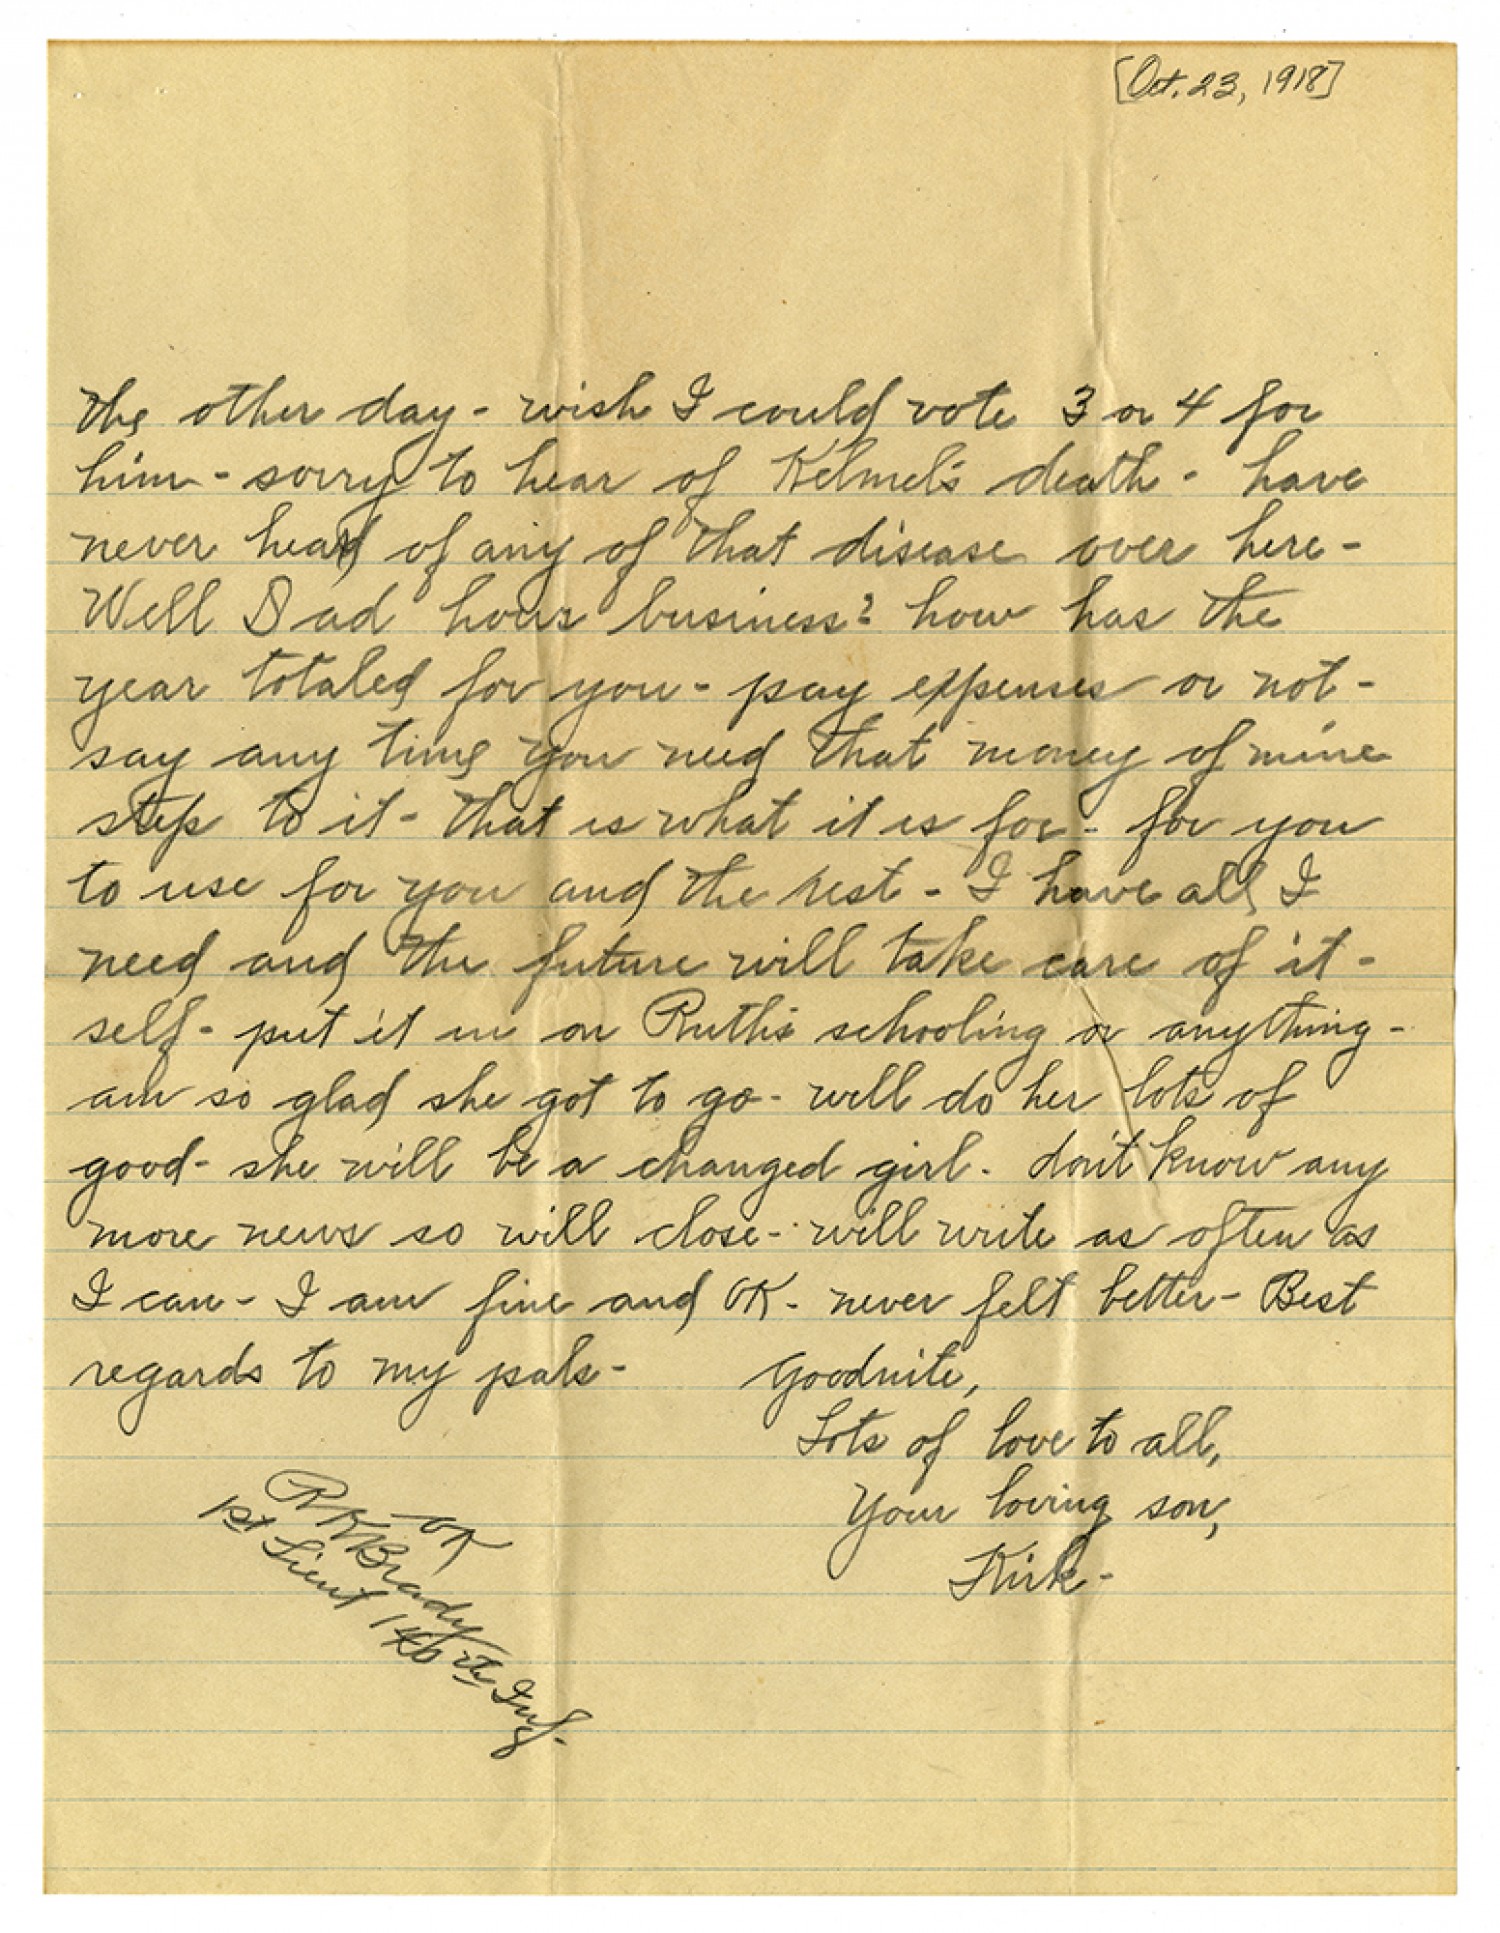 [Oct. 23, 1918]
the other day - wish I could vote 3 or 4 for
him - sorry to hear of Kelmel's death - have
never heard of any of that disease over here -
Well Dad hows business? how has the
year totaled for you - pay expenses or not -
say any time you need that money of mine
step to it - that is what it is for - for you
to use for you and the rest - I have all I
need and the future will take care of it -
self - put it in on Ruth's schooling or anything -
am so glad she got to go - will do her lots of
good - she will be a changed girl. don't know any
more news so will close - will write as often as
I can - I am fine and OK - never felt better - Best
regards to my pals -
Goodnite,
Lots of love to all,
Your loving son,
Kirk -
OK
R K Brady
1st Lieut 140th Inf.